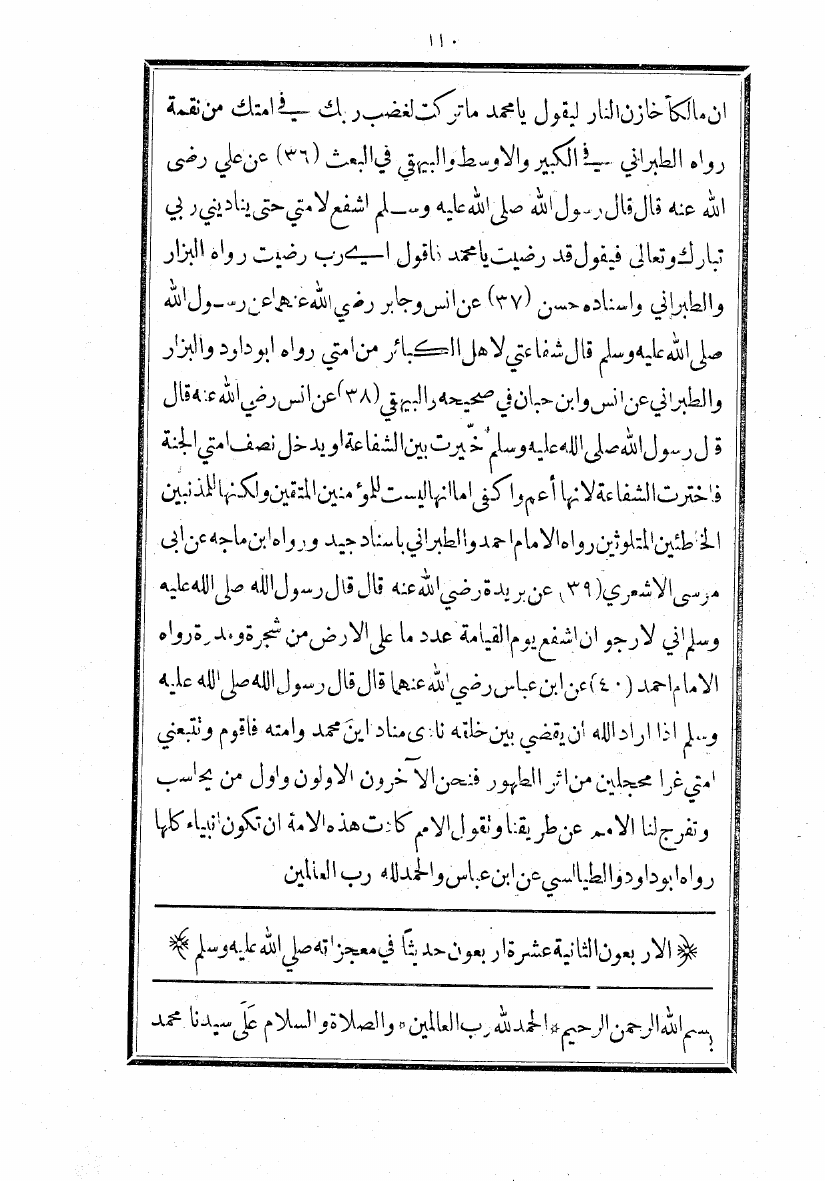 ١١٠
ان مالكاً خازن النار ليقول يا محمد ما تركت لغضب ربك في امتك من نقمة
رواه الطبراني في الكبير والاوسط والبيهقي في البعث (٣٦) عن علي رضى
الله عنه قال قال رسول الله صلى الله عليه وسلم اشفع لامتي حتى يناديني ربي
تبارك وتعالى فيقول قد رضيت يا محمد فاقول اي رب رضيت رواه البزار
والطبراني واسناده حسن (٣٧) عن انس وجابر رضي الله عنهما عن رسول الله
صلى الله عليه وسلم قال شفاعتي لاهل الكبائر من امتي رواه ابو داود والبزار
والطبراني عن انس وابن حبان في صحيحه والبيهقي (٣٨) عن انس رضي الله عنه قال
قال رسول الله صلى الله عليه وسلم خُيّرت بين الشفاعة او يدخل نصف امتي الجنة
فاخترت الشفاعة لانها أعم واكفى اما انها ليست للمؤمنين المتقين ولكنها للمذنبين
الخاطئين المتلوثين رواه الامام احمد والطبراني باسناد جيد ورواه ابن ماجه عن ابى
موسى الاشعري (٣٩) عن بريدة رضي الله عنه قال قال رسول الله صلى الله عليه
وسلم اني لارجو ان اشفع يوم القيامة عدد ما على الارض من شجرة ومدرة رواه
الامام احمد (٤٠) عن ابن عباس رضي الله عنهما قال قال رسول الله صلى الله عليه
وسلم اذا اراد الله ان يقضي بين خلقه نادى مناد اينَ محمد وامته فاقوم وتتبعني
امتي غرا محجلين من اثر الطهور فنحن الآخرون الاولون واول من يحاسب
وتفرج لنا الامم عن طريقنا وتقول الامم كادت هذه الامة ان تكون انبياء كلها
رواه ابو داود والطيالسي عن ابن عباس والحمد لله رب العالمين
﴿ الاربعون الثانية عشرة اربعون حديثاً في معجزاته صلى الله عليه وسلم ﴾
بسم الله الرحمن الرحيم * الحمد لله رب العالمين * والصلاة والسلام عَلَى سيدنا محمد